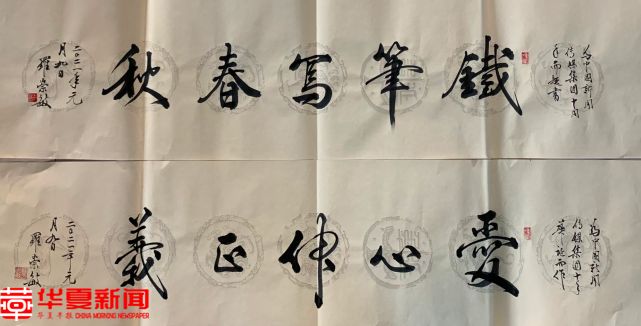 為中國新聞
傳媒集團十周
年而題書
鐵筆寫春秋
二〇二一年元
月九日
羅崇敏
為中國新聞
傳媒集團十周
年
而作
愛心伸正義
二〇二一年元
月九日
羅崇敏
華夏新聞
華夏早報 CHINA MORNING NEWSPAPER